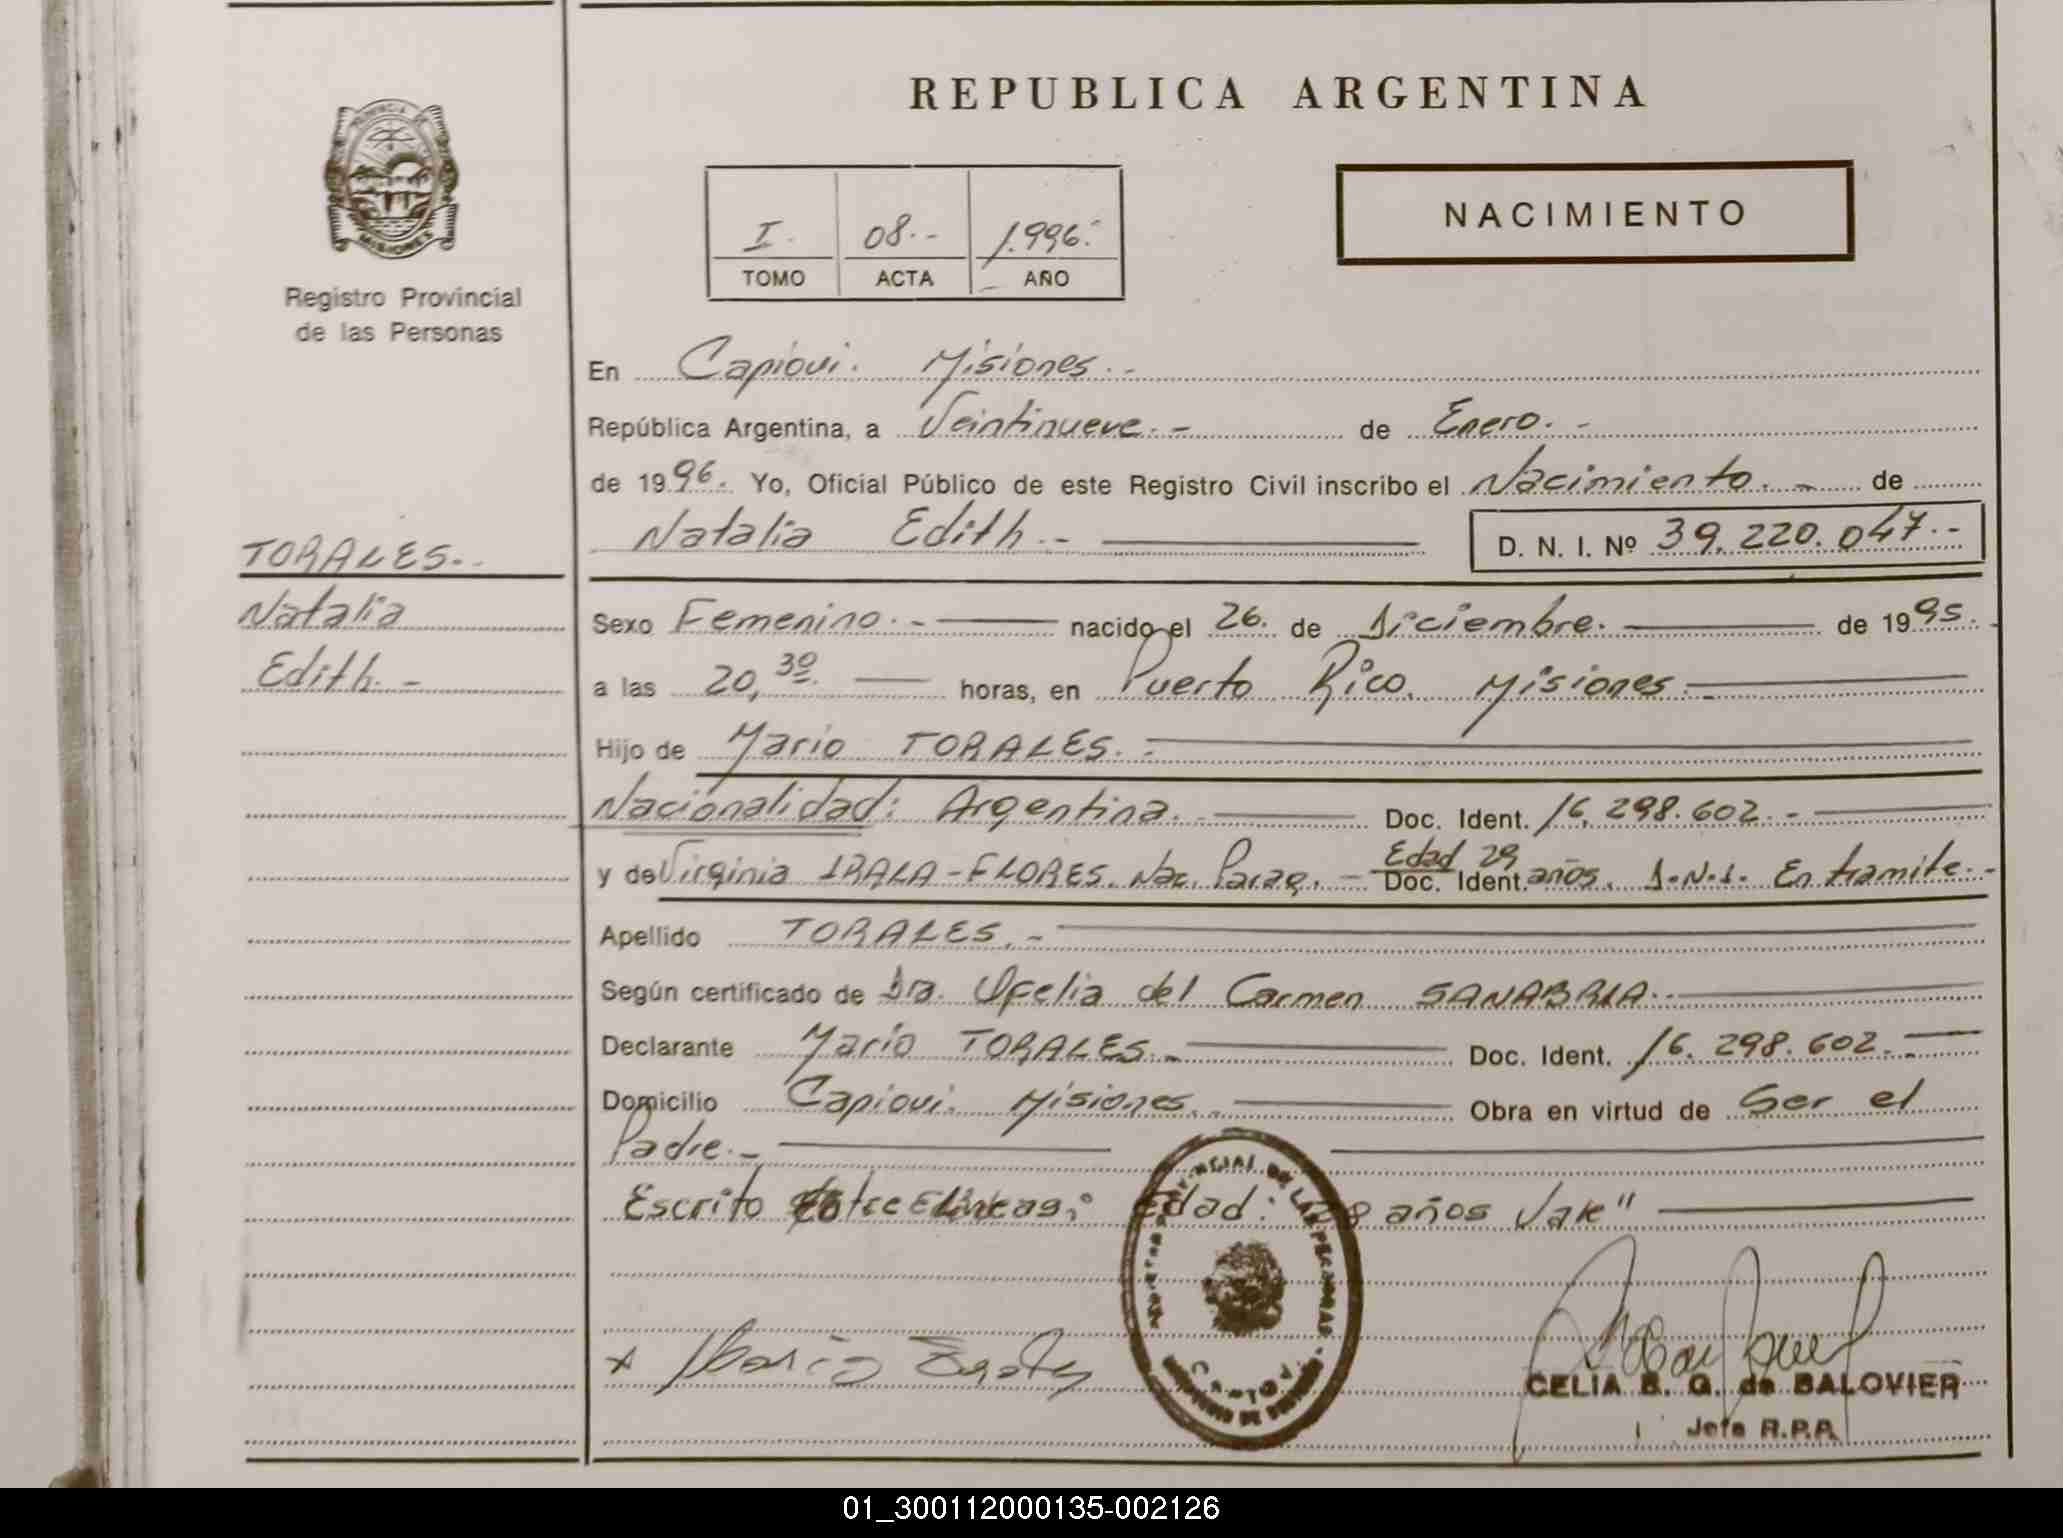 REPUBLICA ARGENTINA
PROVINCIA DE
MISIONES
Registro Provincial
de las Personas
I. 08.- 1.996.-
TOMO ACTA AÑO
NACIMIENTO
En Capiovi. Misiones.-
República Argentina, a Veintinueve.- de Enero.-
de 1996. Yo, Oficial Público de este Registro Civil inscribo el Nacimiento.- de
Natalia Edith.- D. N. I. Nº 39.220.047.-
TORALES.-
Natalia
Edith.-
Sexo Femenino.- nacido el 26. de Diciembre. de 1995.
a las 20,30. horas, en Puerto Rico. Misiones.-
Hijo de Mario TORALES.-
Nacionalidad: Argentina.- Doc. Ident. 16.298.602.-
y de Virginia IRALA-FLORES. Nac. Parag.- Edad 29
Doc. Ident. años. D.N.I. En tramite.-
Apellido TORALES.-
Según certificado de Dra. Ofelia del Carmen SANABRIA.-
Declarante Mario TORALES.- Doc. Ident. 16.298.602.-
Domicilio Capiovi. Misiones.- Obra en virtud de Ser el
Padre.-
Escrito Edad: años Vale"
x Mario
CELIA B. G. de BALOVIER
Jefe R.P.P.
01_300112000135-002126